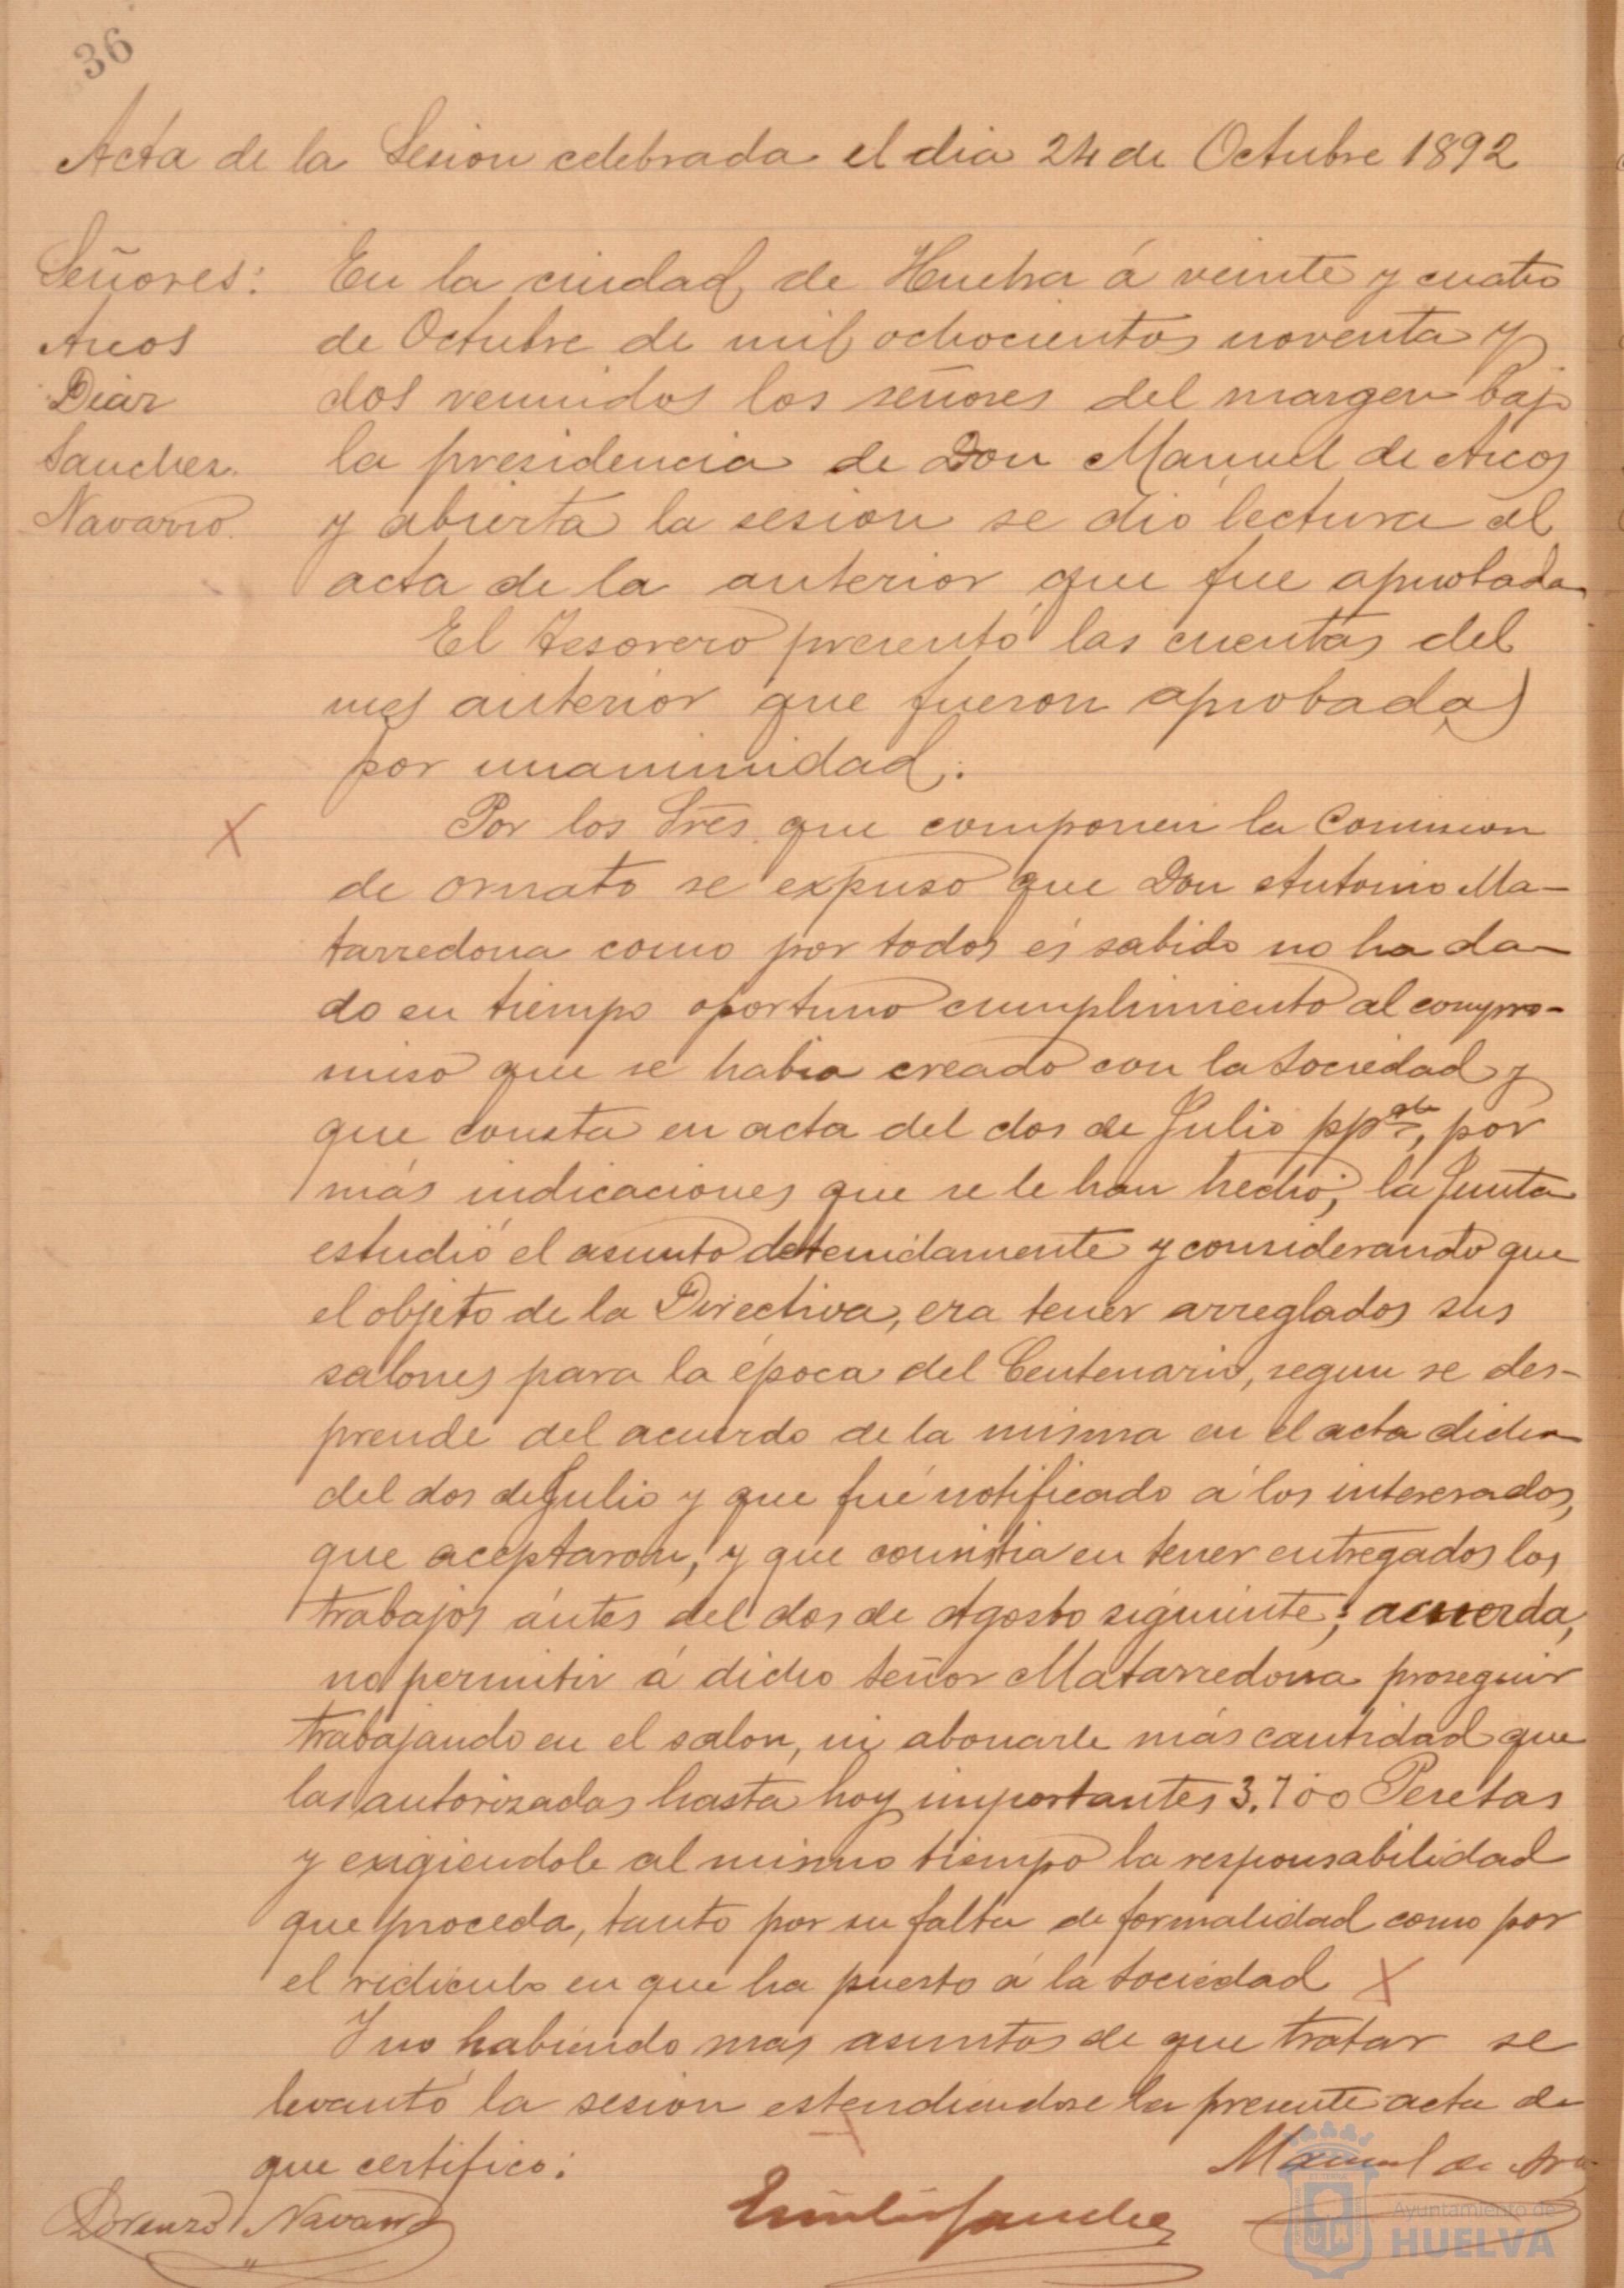 36
Acta de la Sesion celebrada el dia 24 de Octubre 1892
Señores:
Arcos
Diaz
Sanchez.
Navarro.
En la ciudad de Huelva á veinte y cuatro
de Octubre de mil ochocientos noventa y
dos reunidos los señores del margen bajo
la presidencia de Don Manuel de Arcos
y abierta la sesion se dió lectura al
acta de la anterior que fue aprobada
El Tesorero presentó las cuentas del
mes anterior que fueron aprobadas
por unanimidad.
X Por los Sres. que componen la Comision
de ornato se expuso que Don Antonio Ma-
tarredona como por todos és sabido no ha da-
do en tiempo oportuno cumplimiento al compro-
miso que se habia creado con la Sociedad y
que consta en acta del dos de Julio , por
más indicaciones que se le han hecho; la Junta
estudió el asunto detenidamente y considerando que
el objeto de la Directiva, era tener arreglados sus
salones para la época del Centenario, segun se des-
prende del acuerdo de la misma en el acta dicha
del dos de Julio y que fué notificado á los interesados,
que aceptaron, y que consistia en tener entregados los
trabajos ántes del dos de Agosto siguiente; acuerda,
no permitir á dicho señor Matarredona proseguir
trabajando en el salon, ni abonarle más cantidad que
las autorizadas hasta hoy importantes 3.700 Pesetas
y exigiendole al mismo tiempo la responsabilidad
que proceda, tanto por su falta de formalidad como por
el ridiculo en que ha puesto á la Sociedad X
Y no habiendo mas asuntos de que tratar se
levantó la sesion estendiendose la presente acta de
que certifico:
Manuel de Arcos
Lorenzo Navarro
Emilio Sanchez
Ayuntamiento de
HUELVA